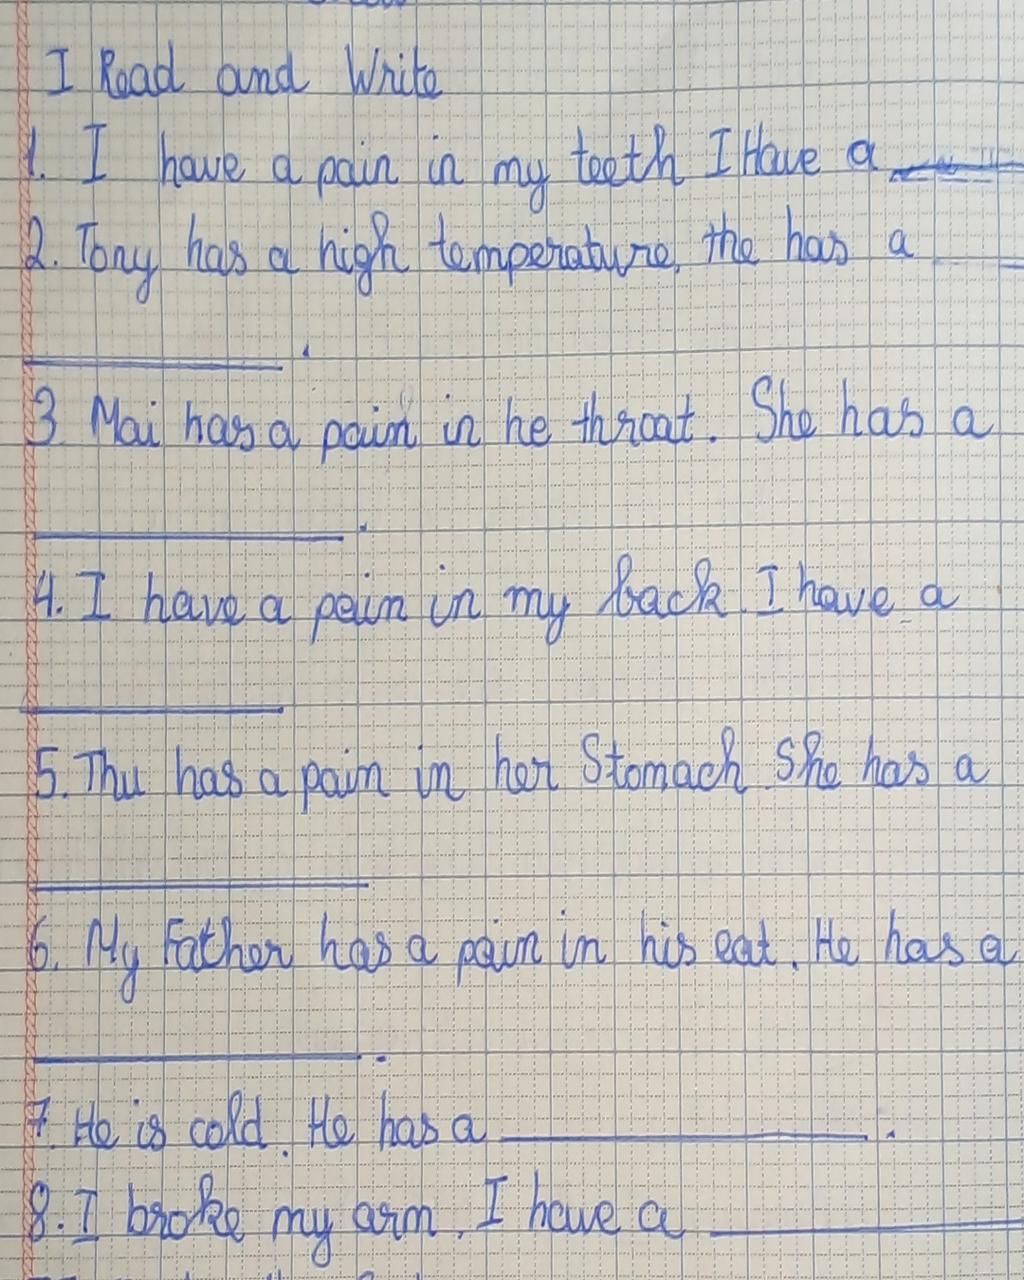 I Read and Write
1. I have a pain in my teeth I Have a
2. Tony has a high temperature, the has a
.
3 Mai has a pain in he throat. She has a
.
4. I have a pein in my back. I have a
5. Thu has a pain in her Stomach. She has a
6. My Father has a pain in his eat. He has a
.
7. He is cold. He has a .
8. I broke my arm. I have a